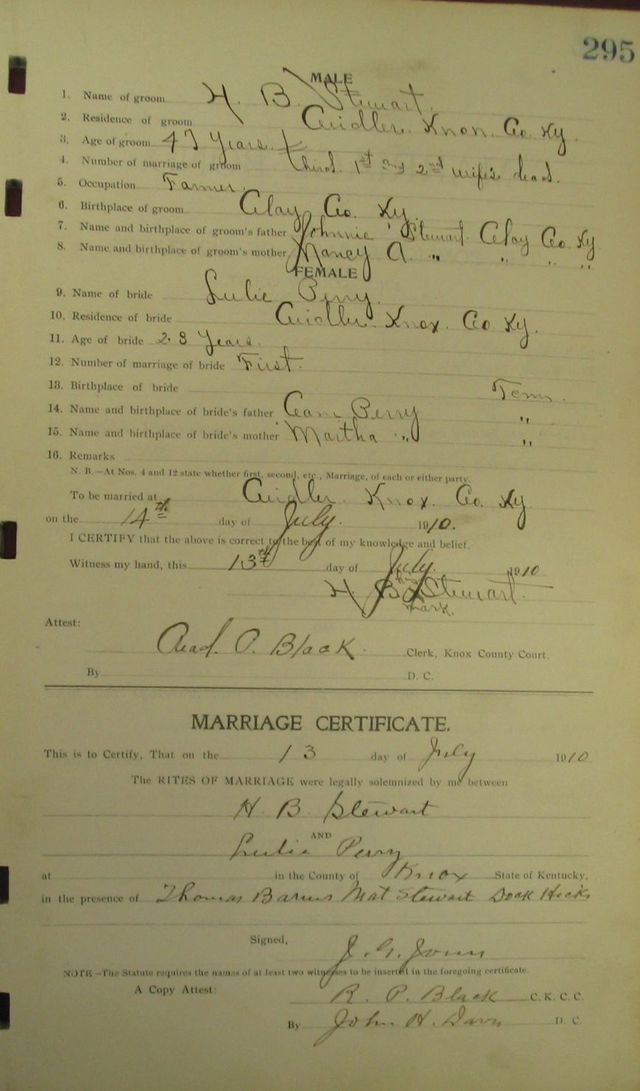 295
MALE
1. Name of groom H. B. Stewart.
2. Residence of groom Knox. Co. Ky.
3. Age of groom 47 Years.
4. Number of marriage of groom third. 1st and 2nd wifes dead.
5. Occupation Farmer.
6. Birthplace of groom Clay Co. Ky.
7. Name and birthplace of groom's father Johnnie Stewart Clay Co. Ky.
8. Name and birthplace of groom's mother Nancy A. " " " "
FEMALE
9. Name of bride Lulie Perry.
10. Residence of bride Knox. Co Ky.
11. Age of bride 23 Years.
12. Number of marriage of bride First.
13. Birthplace of bride Tenn.
14. Name and birthplace of bride's father Perry "
15. Name and birthplace of bride's mother Martha " "
16. Remarks
N. B.—At Nos. 4 and 12 state whether first, second, etc., Marriage, of each or either party.
To be married at Knox. Co. Ky
on the 14th day of July. 1910.
I CERTIFY that the above is correct to the best of my knowledge and belief.
Witness my hand, this 13th day of July. 1910
H. B. Stewart.
mark.
Attest:
Read. P. Black Clerk, Knox County Court.
By D. C.
MARRIAGE CERTIFICATE.
This is to Certify, That on the 13 day of July 1910
The RITES OF MARRIAGE were legally solemnized by me between
H. B. Stewart
AND
Lulie Perry
at in the County of Knox State of Kentucky,
in the presence of Thomas Barnes Mat Stewart Dock Hicks
Signed,
J. G.
NOTE—The Statute requires the names of at least two witnesses to be inserted in the foregoing certificate.
A Copy Attest: R. P. Black C. K. C. C.
By John H. Davis D. C.